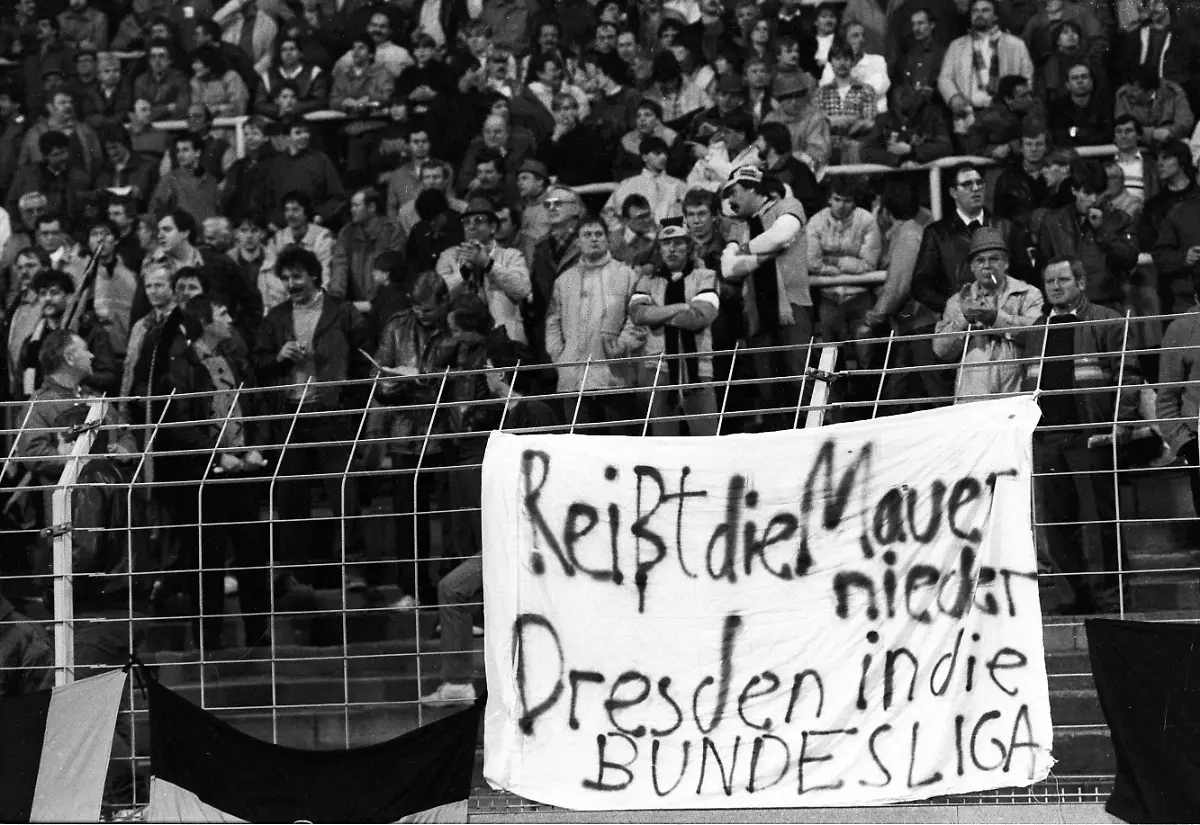 Reißt die Mauer
nieder
Dresden in die
BUNDESLIGA